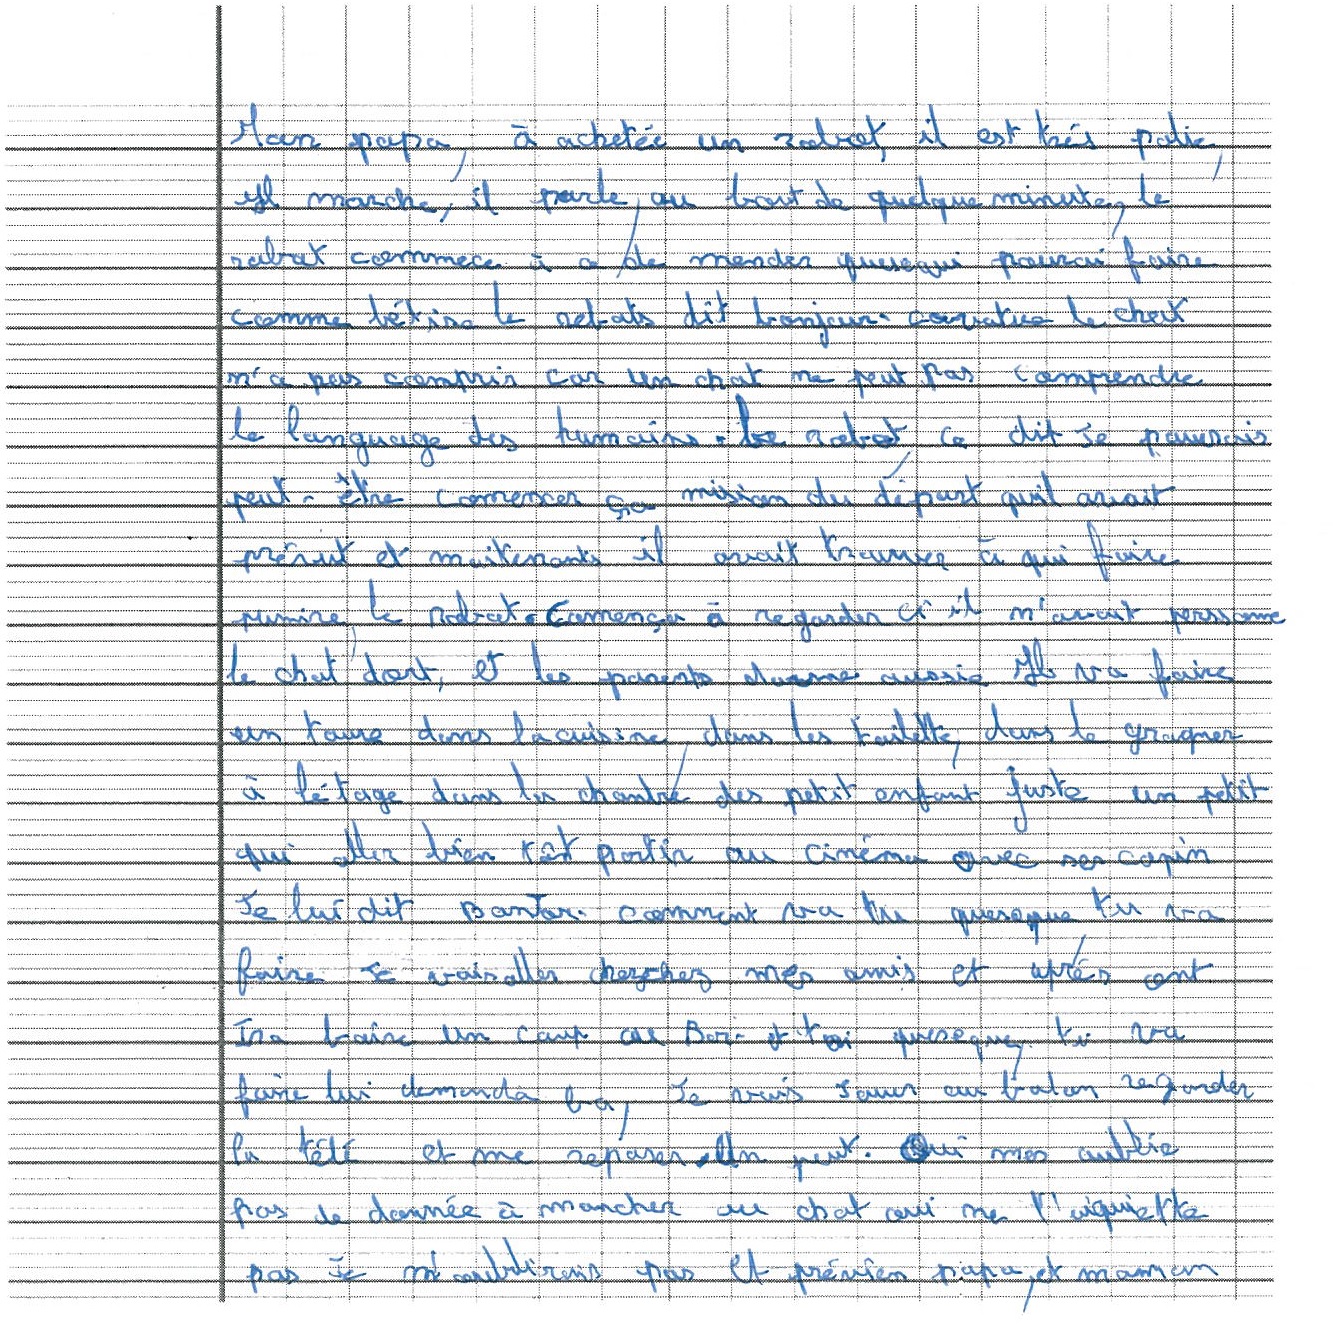 Mon papa, à achetée un robot, il est très polie,
Il marche, il parle, au bout de quelque minute, le
robot commece à a de mender quesequi pourai faire
comme bêtise le robots dit bonjour. le chat
n'a pas comprir car un chat ne peut pas comprendre
le language des humains. Le robot ce dit Je pourrais
peut-être comencer ça mision du départ qu'il avait
prévut et maitenants il avait trouver à qui faire
punire, le Robot. Comença à regarder ci il n'avait perssone
le chat dort, et les parents dorme aussie Il va faire
un toure dans lacuisine, dans les toilette, dans le gragner
à l'étage dans les chambre des petit enfant Juste un petit
qui aller bien tôt partir au cinéma avec ses copin
Je lui dit Bonjor. comment va tu quesque tu va
faire Je vais aller cherchez mes amis et après ont
Ira boire un coup au Bar. et toi queseque, tu va
faire lui demanda ba, Je vais Jouer au balon regarder
la télé et me reposer. Un peut. Oui mes oublie
pas de donnée à mancher au chat oui ne t'uiquiette
pas Je n'oublirais pas Et prévien papa, et maman